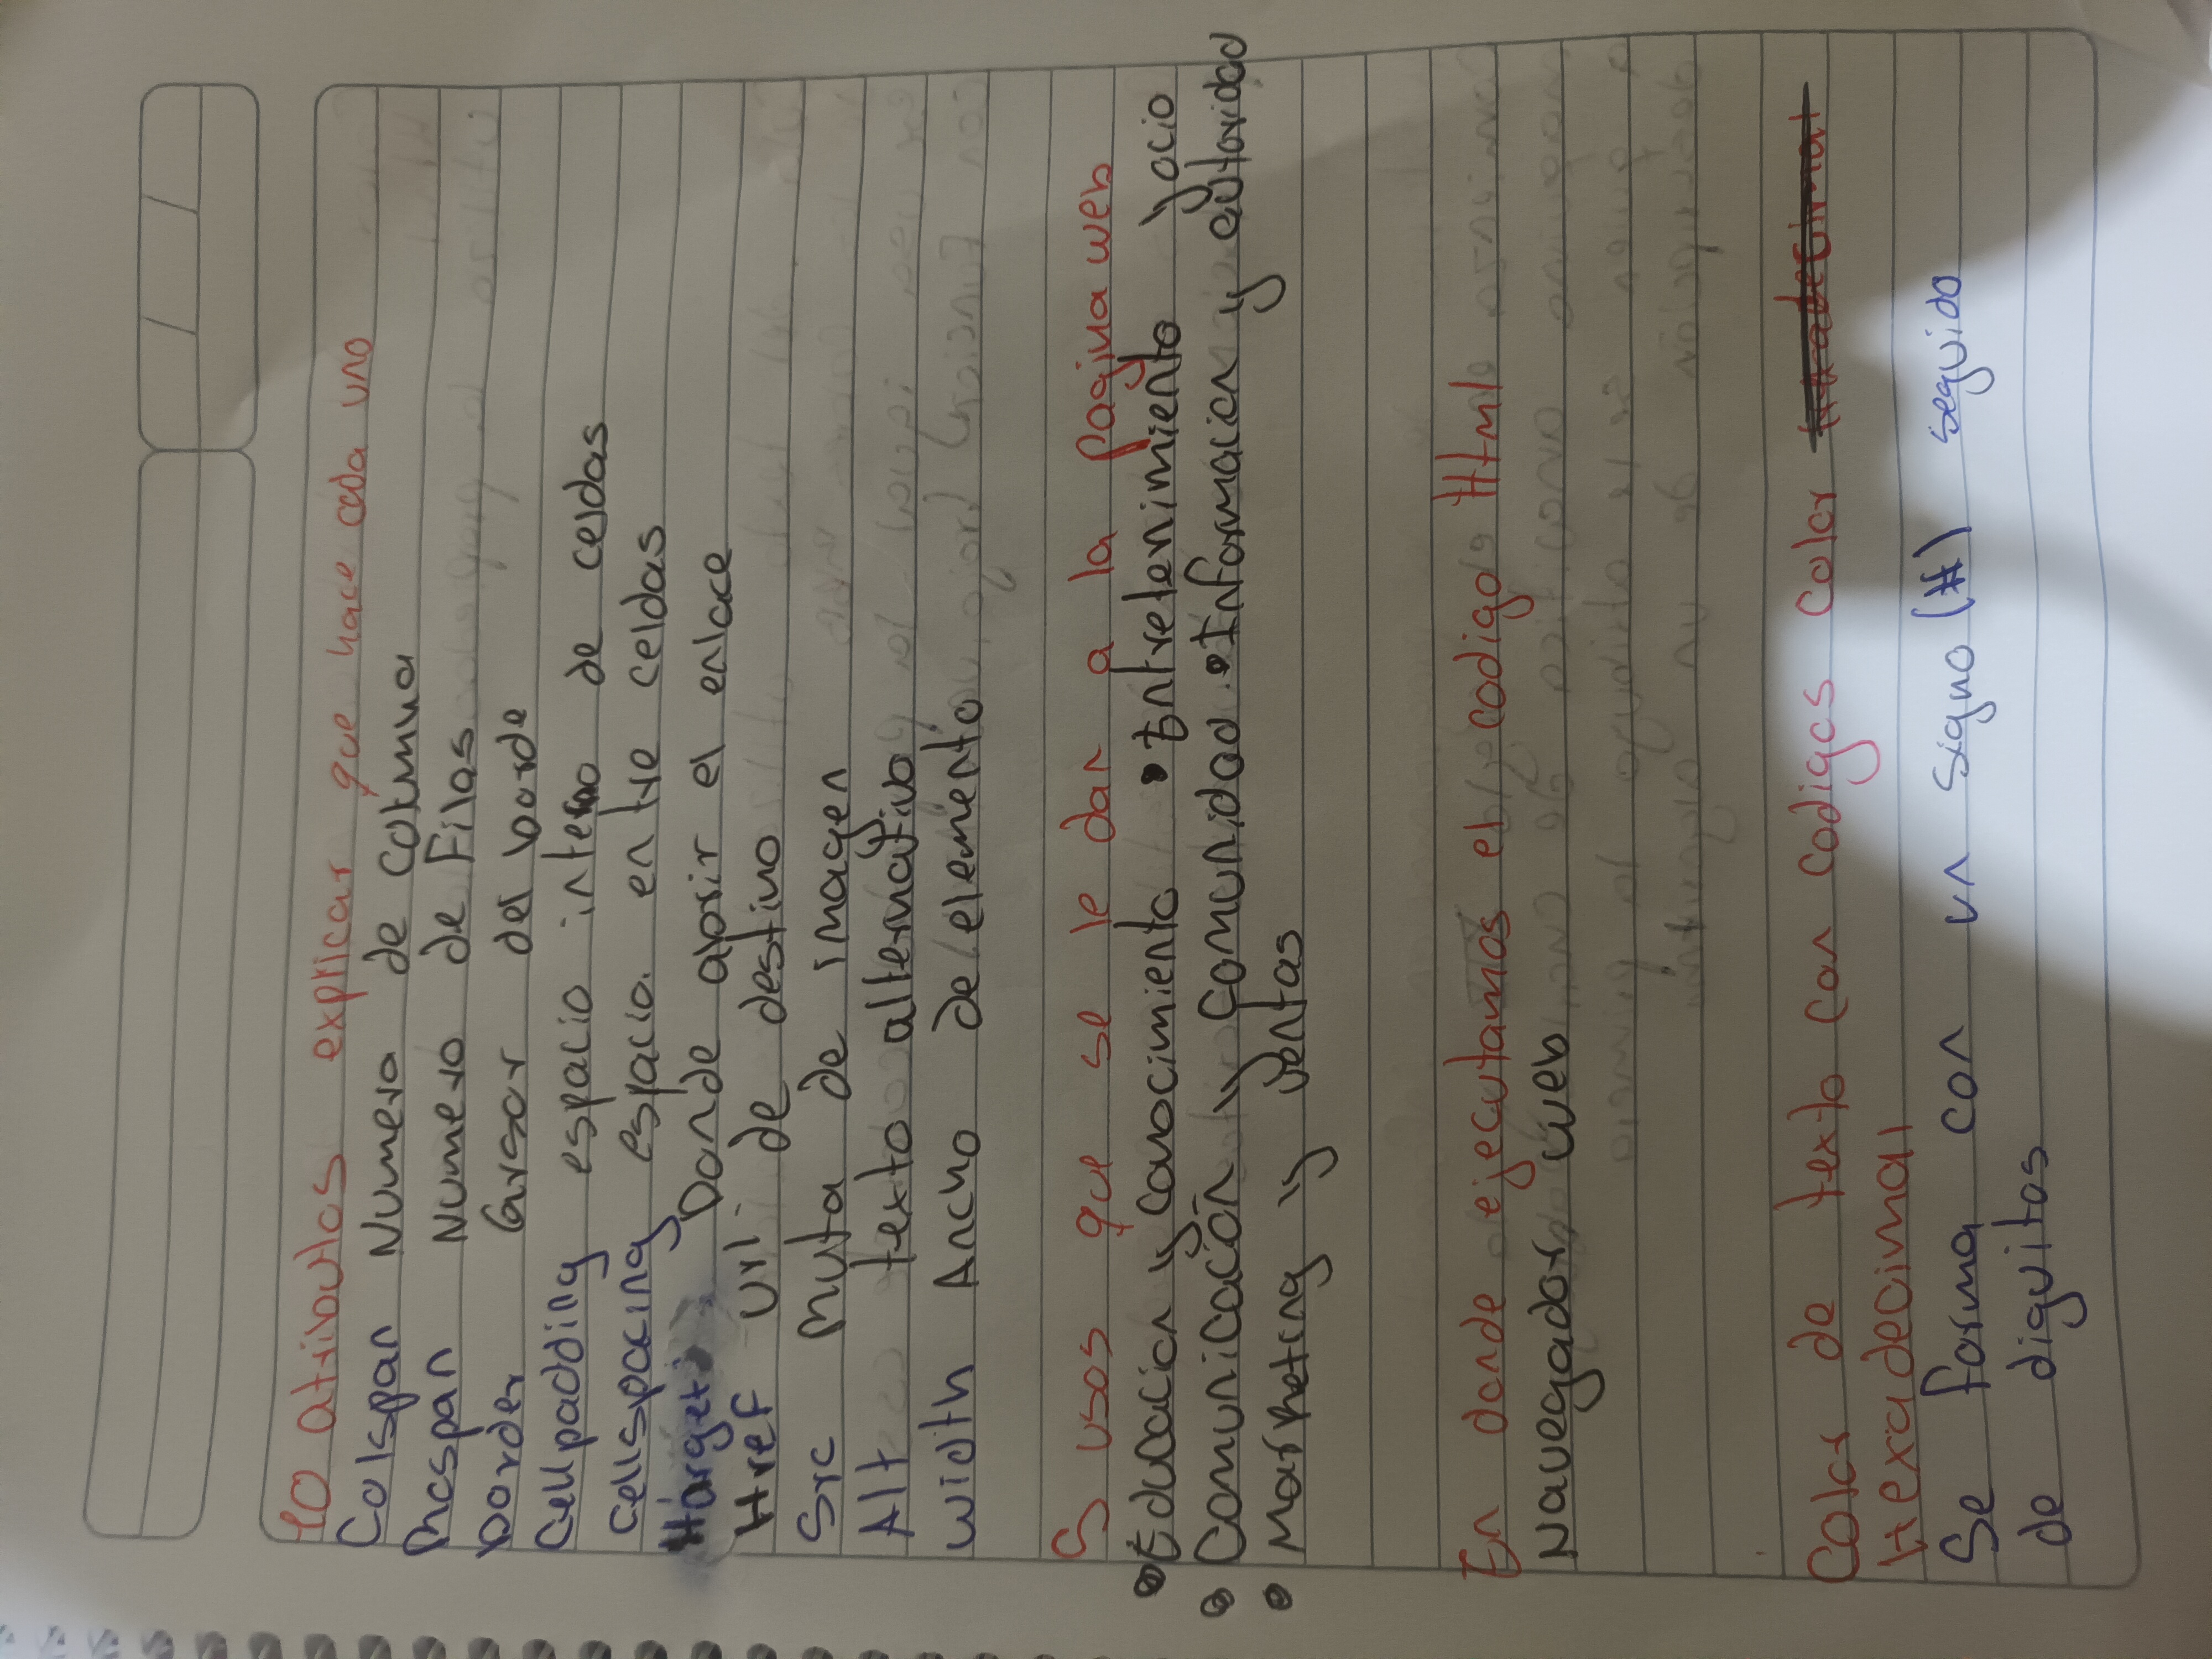 10 atributos explicar que hace cada uno
Colspan Numero de columna
Rospan Numero de Filas
border Grosor del borde
Cellpadding espacio interno de celdas
Cellspacing espacio entre celdas
Harget Donde abrir el enlace
Href Url de destino
Src Ruta de imagen
Alt texto alternativo
width Ancho de elemento
5 usos que se le dan a la pagina web
• Educacion y conocimiento • Entretenimiento y ocio
• Comunicación y comunidad • Informacion y autoridad
• Marketing y ventas
En donde ejecutamos el codigo Html
Navegador web
Color de texto con codigos color
Hexadecimal
Se forma con un signo (#) seguido
de diguitos